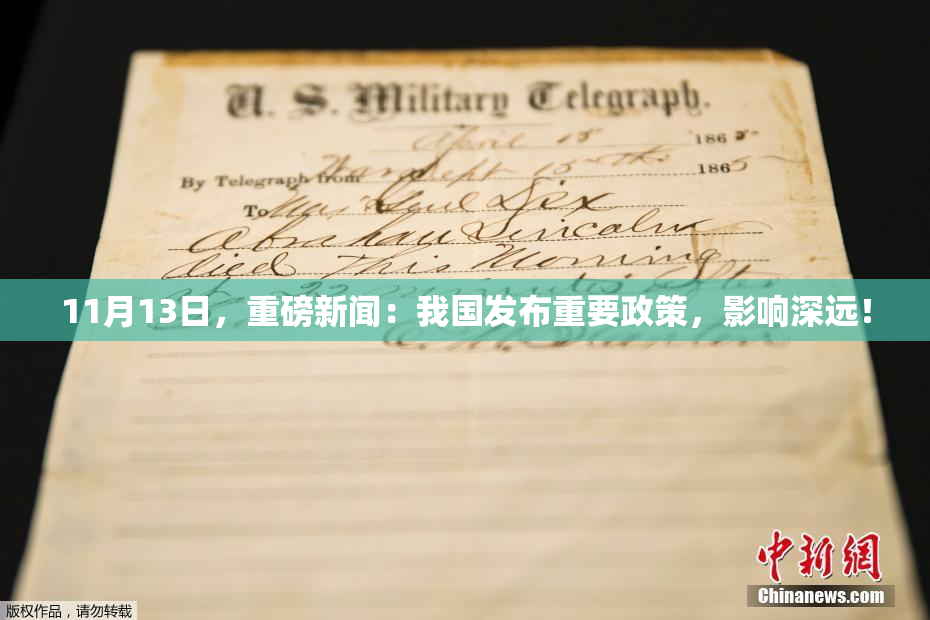 U. S. Military Telegraph.
April 15 1865
By Telegraph from War Dept 15th 1865
To Maj Genl Dix
Abraham Lincoln
died This Morning
at 22 minutes after
11月13日，重磅新闻：我国发布重要政策，影响深远！
E. M. Stanton
中新网
Chinanews.com
版权作品，请勿转载